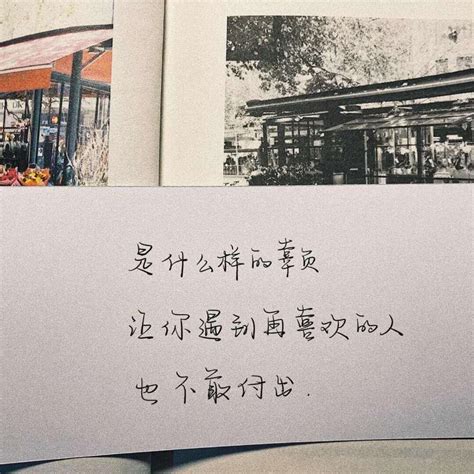 是什么样的辜负
让你遇到再喜欢的人
也不敢付出.